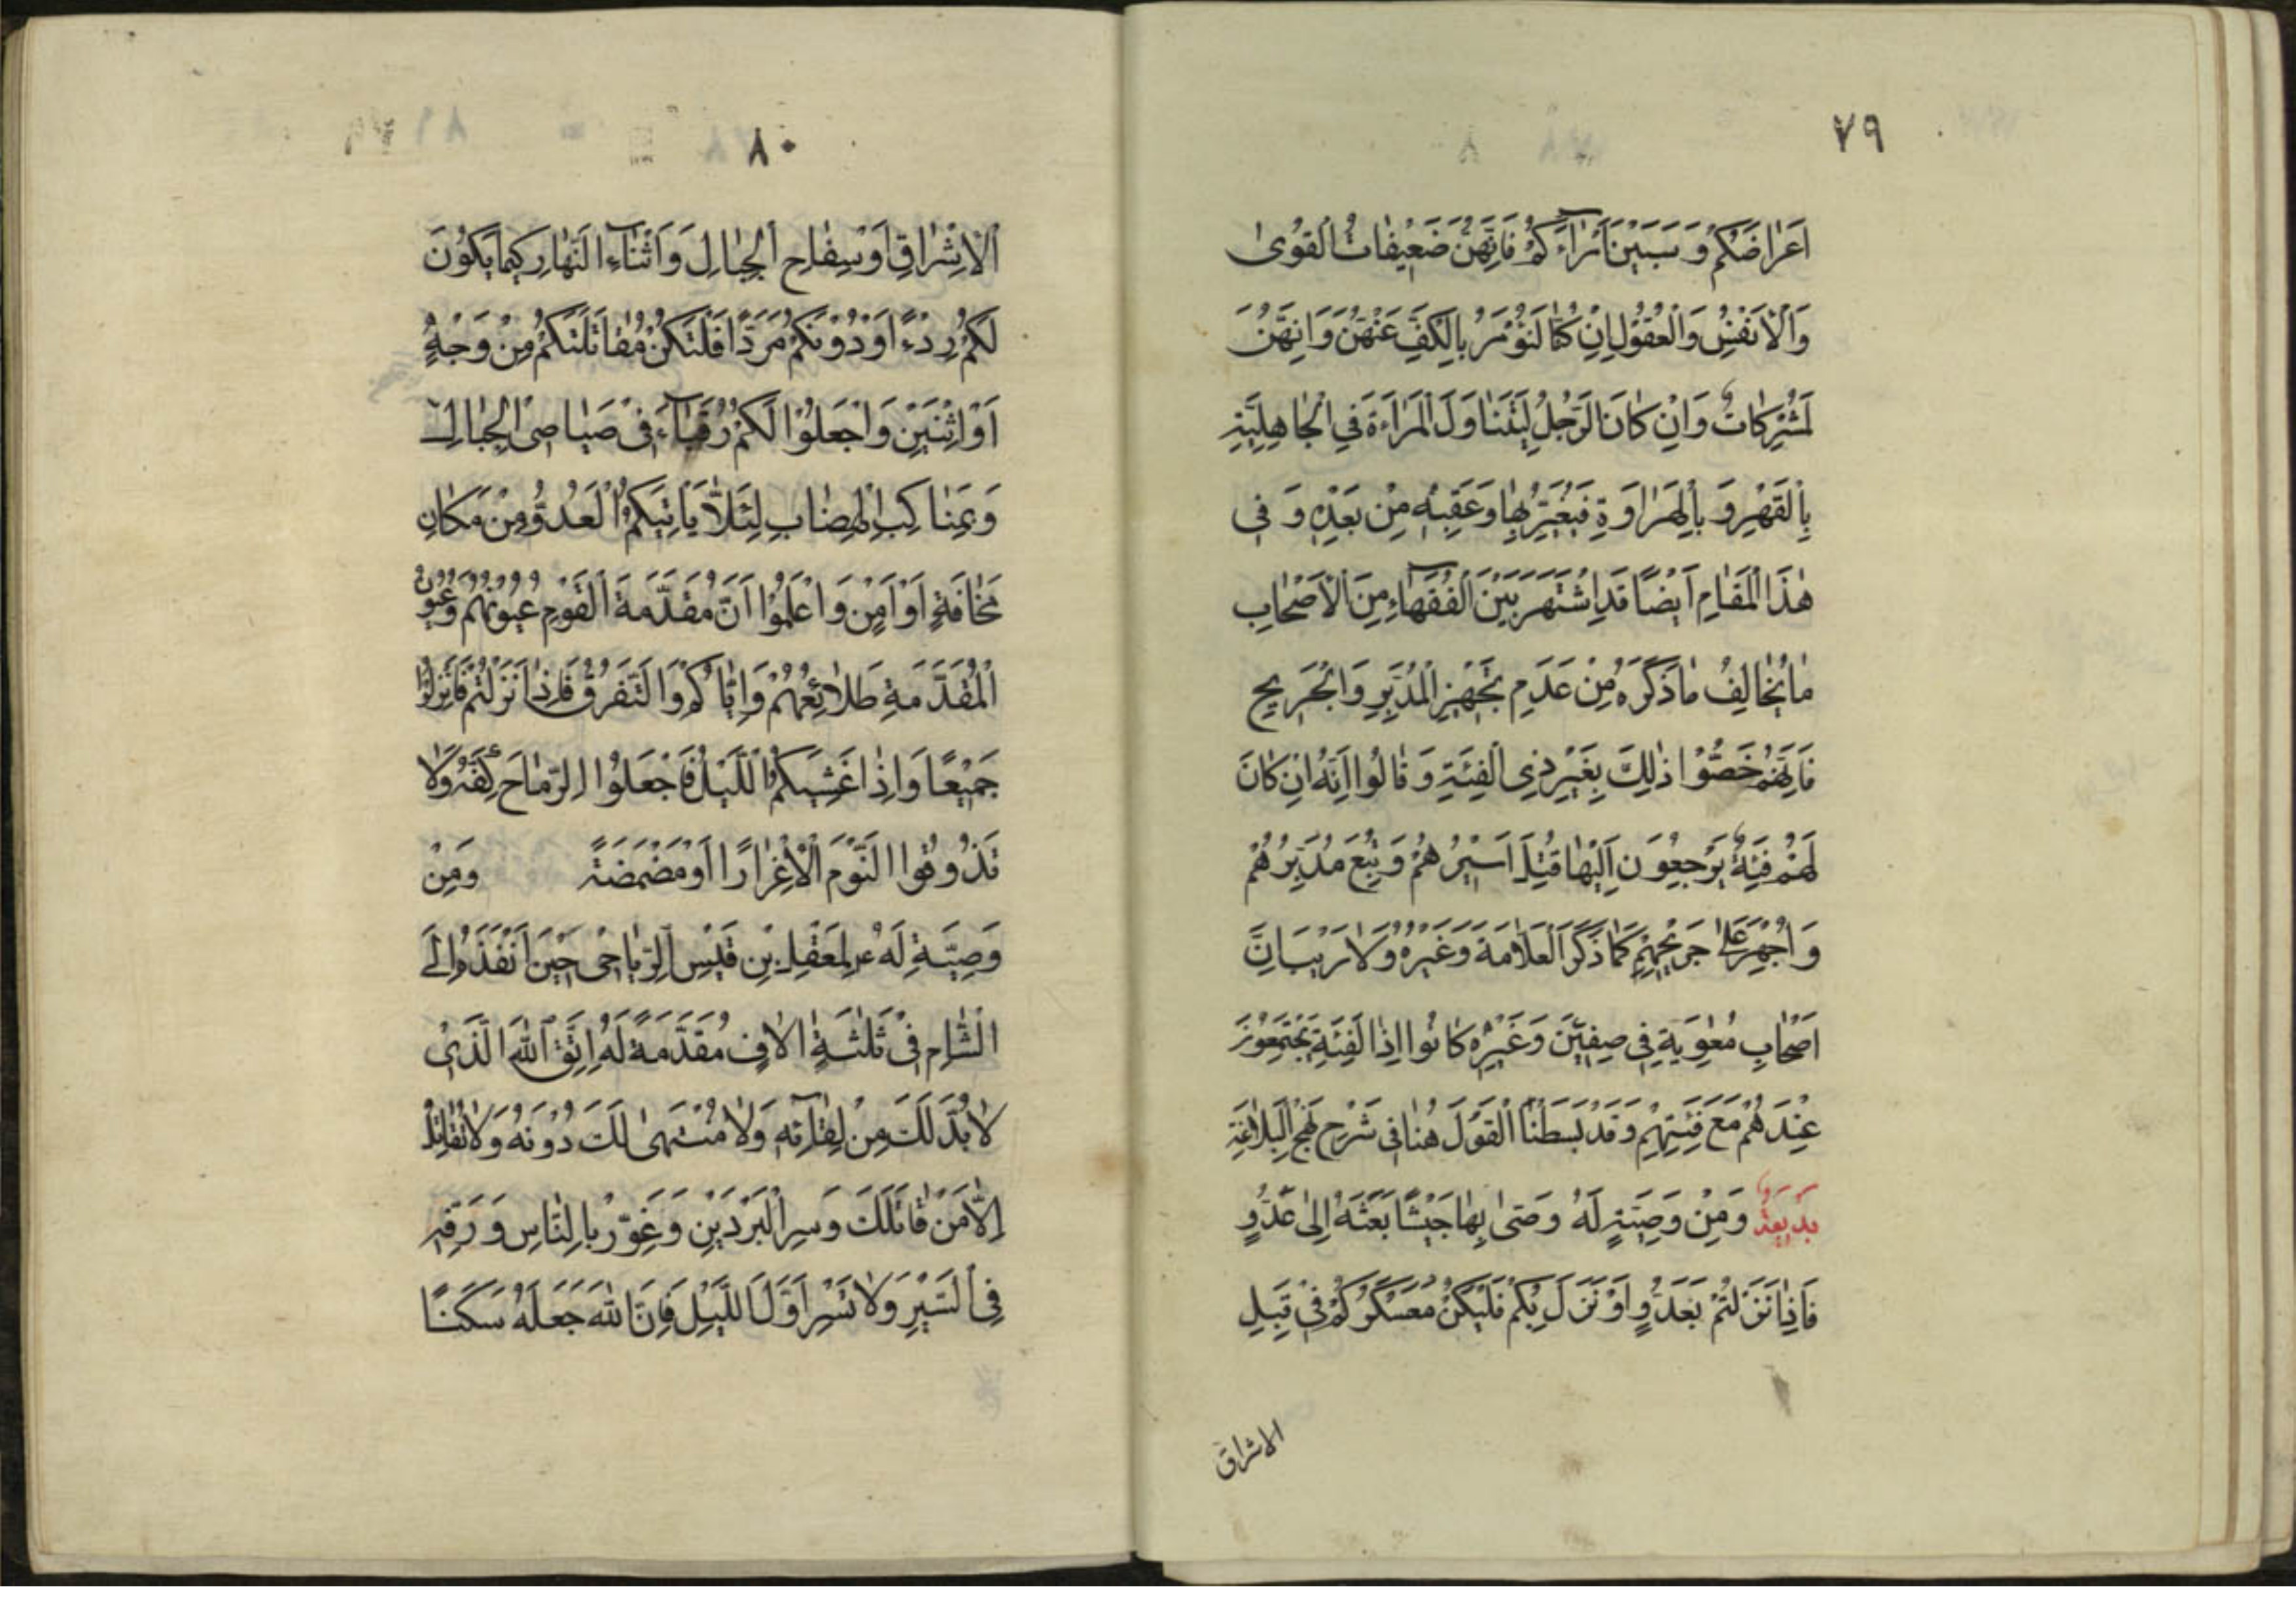 ٧٩
اَعْراضَكُمْ وَسَبَبْنَ اُمَراءَكُمْ فَاِنَّهُنَّ ضَعيفاتُ الْقُوىٰ
وَالْاَنْفُسِ وَالْعُقُولِ اِنْ كُنّا لَنُؤْمَرُ بِالْكَفِّ عَنْهُنَّ وَاِنَّهُنَّ
لَمُشْرِكاتٌ وَاِنْ كانَ الرَّجُلُ لَيَتَناوَلُ الْمَرْاَةَ فِي الْجاهِلِيَّةِ
بِالْفَهْرِ وَ بِالْهِراوَةِ فَيُعَيَّرُ بِها وَعَقِبُهُ مِنْ بَعْدِهِ وَ في
هٰذَا الْمَقامِ اَيْضًا قَدِ اشْتَهَرَ بَيْنَ الْفُقَهاءِ مِنَ الْاَصْحابِ
ما يُخالِفُ ما ذَكَرَهُ مِنْ عَدَمِ تَجْهيزِ الْمُدْبِرِ وَالْجَريحِ
فَاِنَّهُمْ خَصُّوْا ذٰلِكَ بِغَيْرِ ذِي الْفِئَةِ وَ قالُوا اِنَّهُ اِنْ كانَ
لَهُمْ فِئَةٌ يَرْجِعُونَ اِلَيْها قُتِلَ اَسيرُهُمْ وَ تُبِعَ مُدْبِرُهُمْ
وَ اُجْهِزَ عَلىٰ جَريحِهِمْ كَما ذَكَرَ الْعَلّامَةُ وَغَيْرُهُ وَلا رَيْبَ اَنَّ
اَصْحابَ مُعٰوِيَةَ في صِفّينَ وَغَيْرِهِ كانُوا اِذَا لْفِئَةِ يَجْتَمِعُونَ
عِنْدَهُمْ مَعَ فِئَتِهِمْ وَقَدْ بَسَطْنَا الْقَوْلَ هُنا في شَرْحِ نَهْجِ الْبَلاغَةِ
وَمِنْ وَصِيَّتِهِ لَهُ وَصّىٰ بِها جَيْشًا بَعَثَهُ اِلىٰ عَدُوٍّ
فَاِذا نَزَلْتُمْ بِعَدُوٍّ اَوْ نَزَلَ بِكُمْ فَلْيَكُنْ مُعَسْكَرُكُمْ في قُبُلِ
الاشراق
٨٠
الْاِشْرافِ اَوْ سِفاحِ الْجِبالِ وَاَثْناءِ النَّهارِ كَيْما يَكُونَ
لَكُمْ رِدْءًا وَدُونَكُمْ مَرَدًّا فَلْتَكُنْ مُقاتَلَتُكُمْ مِنْ وَجْهٍ
اَوِ اثْنَيْنِ وَاجْعَلُوْا لَكُمْ رُقَباءَ في صَياصِي الْجِبالِ
وَبِمَناكِبِ الْهِضابِ لِئَلّا يَاْتِيَكُمُ الْعَدُوُّ مِنْ مَكانِ
مَخافَةٍ اَوْ اَمْنٍ وَاعْلَمُوْا اَنَّ مُقَدَّمَةَ الْقَوْمِ عُيُونُهُمْ وَعُيُونُ
الْمُقَدَّمَةِ طَلائِعُهُمْ وَاِيّاكُمْ وَالتَّفَرُّقَ فَاِذا نَزَلْتُمْ فَانْزِلُوْا
جَميعًا وَاِذا غَشِيَكُمُ اللَّيْلُ فَاجْعَلُوْا الرِّماحَ كِفَّةً وَلا
تَذُوقُوا النَّوْمَ اِلّا غِرارًا اَوْ مَضْمَضَةً وَمِنْ
وَصِيَّةٍ لَهُ ع لِمَعْقِلِ بْنِ قَيْسِ الرِّياحِيِّ حينَ اَنْفَذَهُ اِلَى
الشّامِ في ثَلٰثَةِ الافٍ مُقَدَّمَةً لَهُ اِتَّقِ اللهَ الَّذي
لا بُدَّ لَكَ مِنْ لِقائِهِ وَلا مُنْتَهىٰ لَكَ دُونَهُ وَلا تُقاتِلَنَّ
اِلّا مَنْ قاتَلَكَ وَسِرِ الْبَرْدَيْنِ وَغَوِّرْ بِالنّاسِ وَ رَفِّهْ
فِي السَّيْرِ وَلا تَسِرْ اَوَّلَ اللَّيْلِ فَاِنَّ اللهَ جَعَلَهُ سَكَنًا